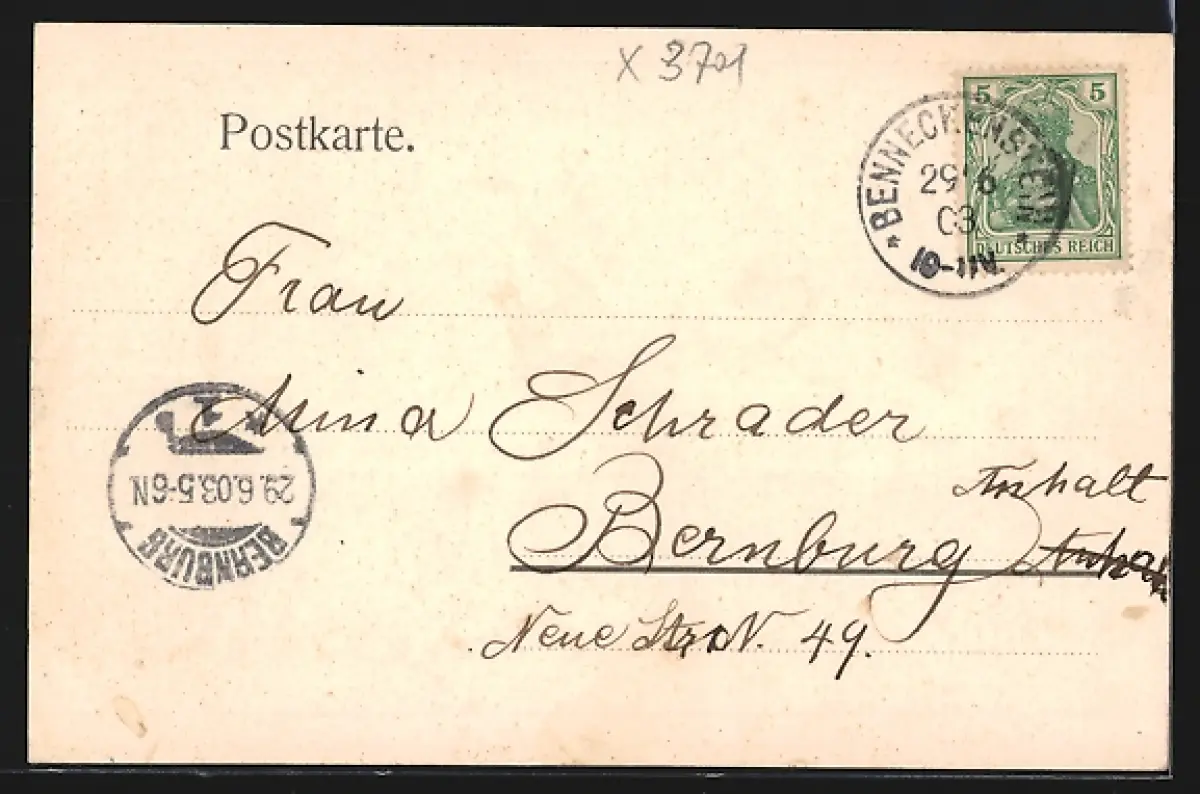 x 3701
Postkarte.
5 5
DEUTSCHES REICH
* BENNECKENSTEIN *
29 6
03
10-11N.
Frau
Mina Schrader
Anhalt
Bernburg
Neue Str. N. 49.
29.6.03.5-6N
BERNBURG